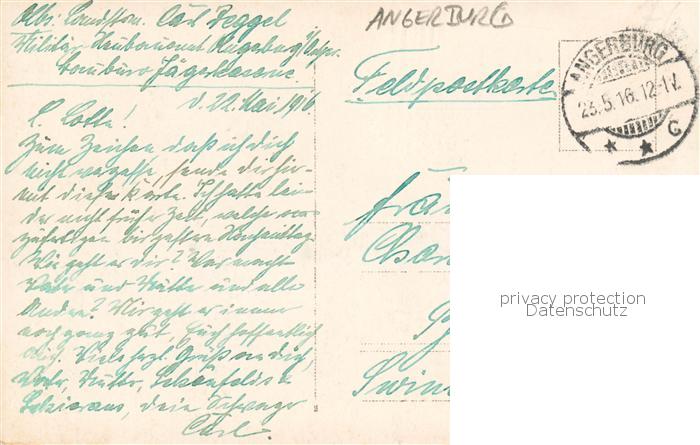 Abs: Landstm. Carl Peggel
Militär Neubauamt Angerburg Ostpr.
Baubüro Jägerkaserne
d. 22 Mai 1916
L. Lotte!
Zum Zeichen daß ich dich
nicht vergesse, sende dir hier-
mit diese Karte. Ich hatte lei-
der nicht früher Zeit, welche
bis gestern Nachmittag
Wie geht es dir? Was macht
Vater und Mutter und alle
Andern? Mir geht es immer
noch ganz gut, Euch hoffentlich
auch. Viele hrzl. Grüße an dich,
Vater, Mutter, Schönfelds &
dein Schwager
Carl.
ANGERBURG
Feldpostkarte
ANGERBURG
23.5.16.12-1V.
* * C
Swine
privacy protection
Datenschutz